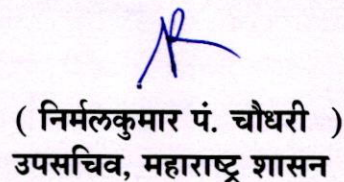 ( निर्मलकुमार पं. चौधरी )
उपसचिव, महाराष्ट्र शासन